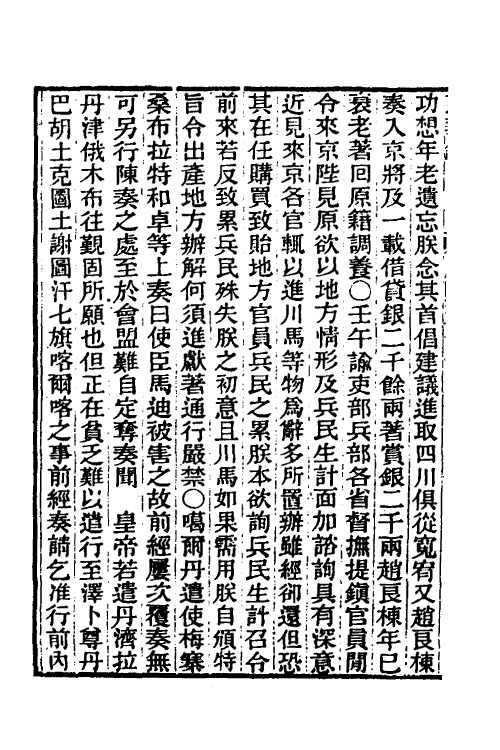 功想年老遺忘朕念其首倡建議進取四川俱從寬宥又趙良棟
奏入京將及一載借貸銀二千餘兩著賞銀二千兩趙良棟年已
衰老著回原籍調養○壬午諭吏部兵部各省督撫提鎮官員閒
令來京陛見原欲以地方情形及兵民生計面加諮詢具有深意
近見來京各官輒以進川馬等物爲辭多所置辦雖經卻還但恐
其在任購買致貽地方官員兵民之累朕本欲詢兵民生計召令
前來若反致累兵民殊失朕之初意且川馬如果需用朕自頒特
旨令出產地方辦解何須進獻著通行嚴禁○噶爾丹遣使梅寨
桑布拉特和卓等上奏曰使臣馬迪被害之故前經屢次覆奏無
可另行陳奏之處至於會盟難自定奪奏聞　皇帝若遣丹濟拉
丹津俄木布往覲固所願也但正在貧乏難以遣行至澤卜尊丹
巴胡土克圖土謝圖汗七旗喀爾喀之事前經奏請乞准行前內